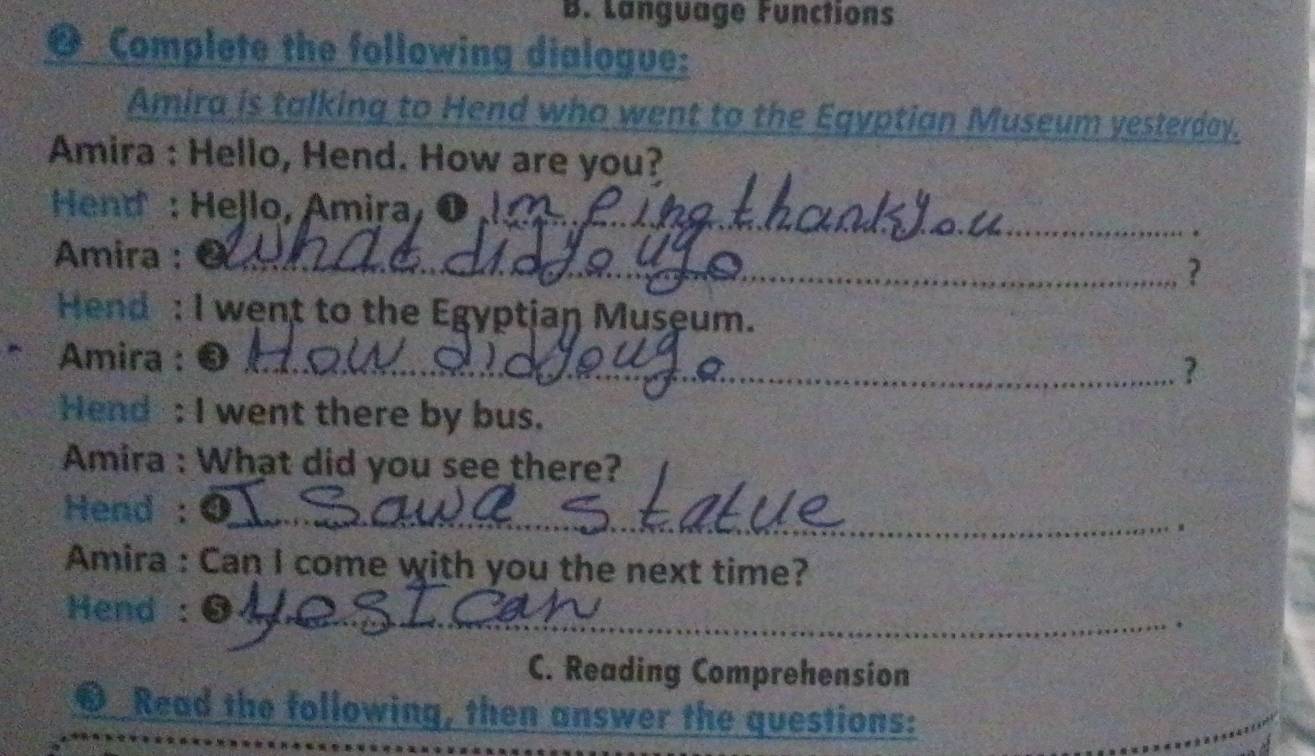 B. Language Functions
2 Complete the following dialogue:
Amira is talking to Hend who went to the Egyptian Museum yesterday.
Amira : Hello, Hend. How are you?
Hend : Hello, Amira, 1 Im eing thank you .
Amira : 2 What did you go ?
Hend : I went to the Egyptian Museum.
Amira : 3 How did you go ?
Hend : I went there by bus.
Amira : What did you see there?
Hend : 4 I saw a statue .
Amira : Can I come with you the next time?
Hend : 5 yes I can .
C. Reading Comprehension
3 Read the following, then answer the questions: